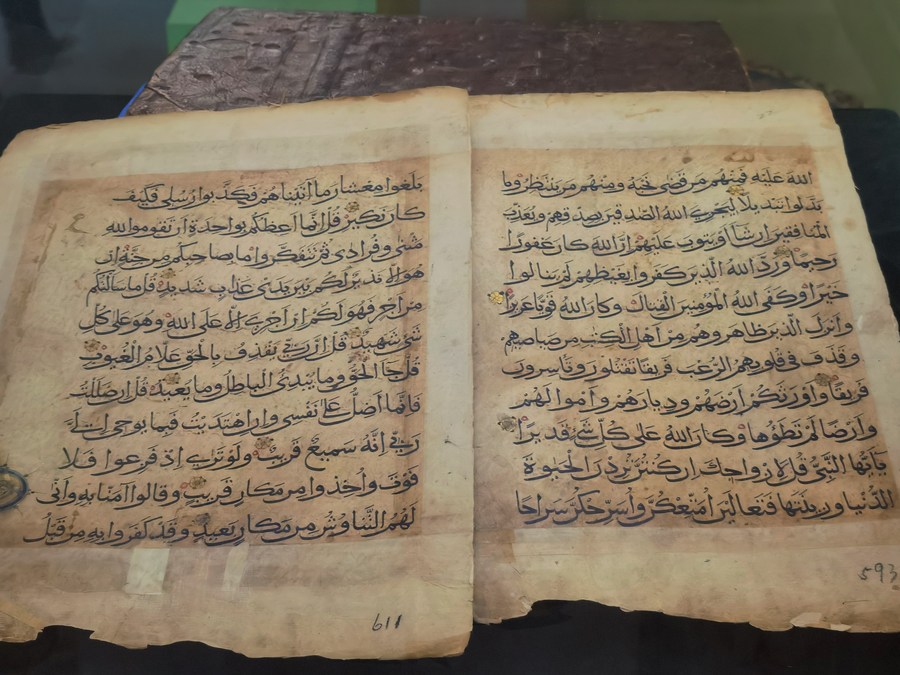 الله عليه فمنهم من قضى نحبه ومنهم من ينتظر وما
بدلوا تبديلا ليجزي الله الصدقين بصدقهم ويعذب
المنافقين ان شا او يتوب عليهم ان الله كان غفورا
رحيما ورد الله الذين كفروا بغيظهم لم ينالوا
خيرا وكفى الله المؤمنين القتال وكان الله قويا عزيزا
وانزل الذين ظاهروهم من اهل الكتب من صياصيهم
وقذف في قلوبهم الرعب فريقا تقتلون وتأسرون
فريقا واورثكم ارضهم وديارهم واموالهم
وارضا لم تطؤها وكان الله على كل شئ قديرا
يايها النبي قل لازواجك ان كنتن تردن الحيوة
الدنيا وزينتها فتعالين امتعكن واسرحكن سراحا
593
بلغوا معشار ما آتيناهم فكذبوا رسلي فكيف
كان نكير قل انما اعظكم بواحدة ان تقوموا لله
مثنى وفرادى ثم تتفكروا ما بصاحبكم من جنة ان
هو الا نذير لكم بين يدي عذاب شديد قل ما سألتكم
من اجر فهو لكم ان اجري الا على الله وهو على كل
شئ شهيد قل ان ربي يقذف بالحق علام الغيوب
قل جا الحق وما يبدئ الباطل وما يعيد قل ان ضللت
فانما اضل على نفسي وان اهتديت فبما يوحي الي
ربي انه سميع قريب ولو ترى اذ فزعوا فلا
فوت واخذوا من مكان قريب وقالوا آمنا به وانى
لهم التناوش من مكان بعيد وقد كفروا به من قبل
611